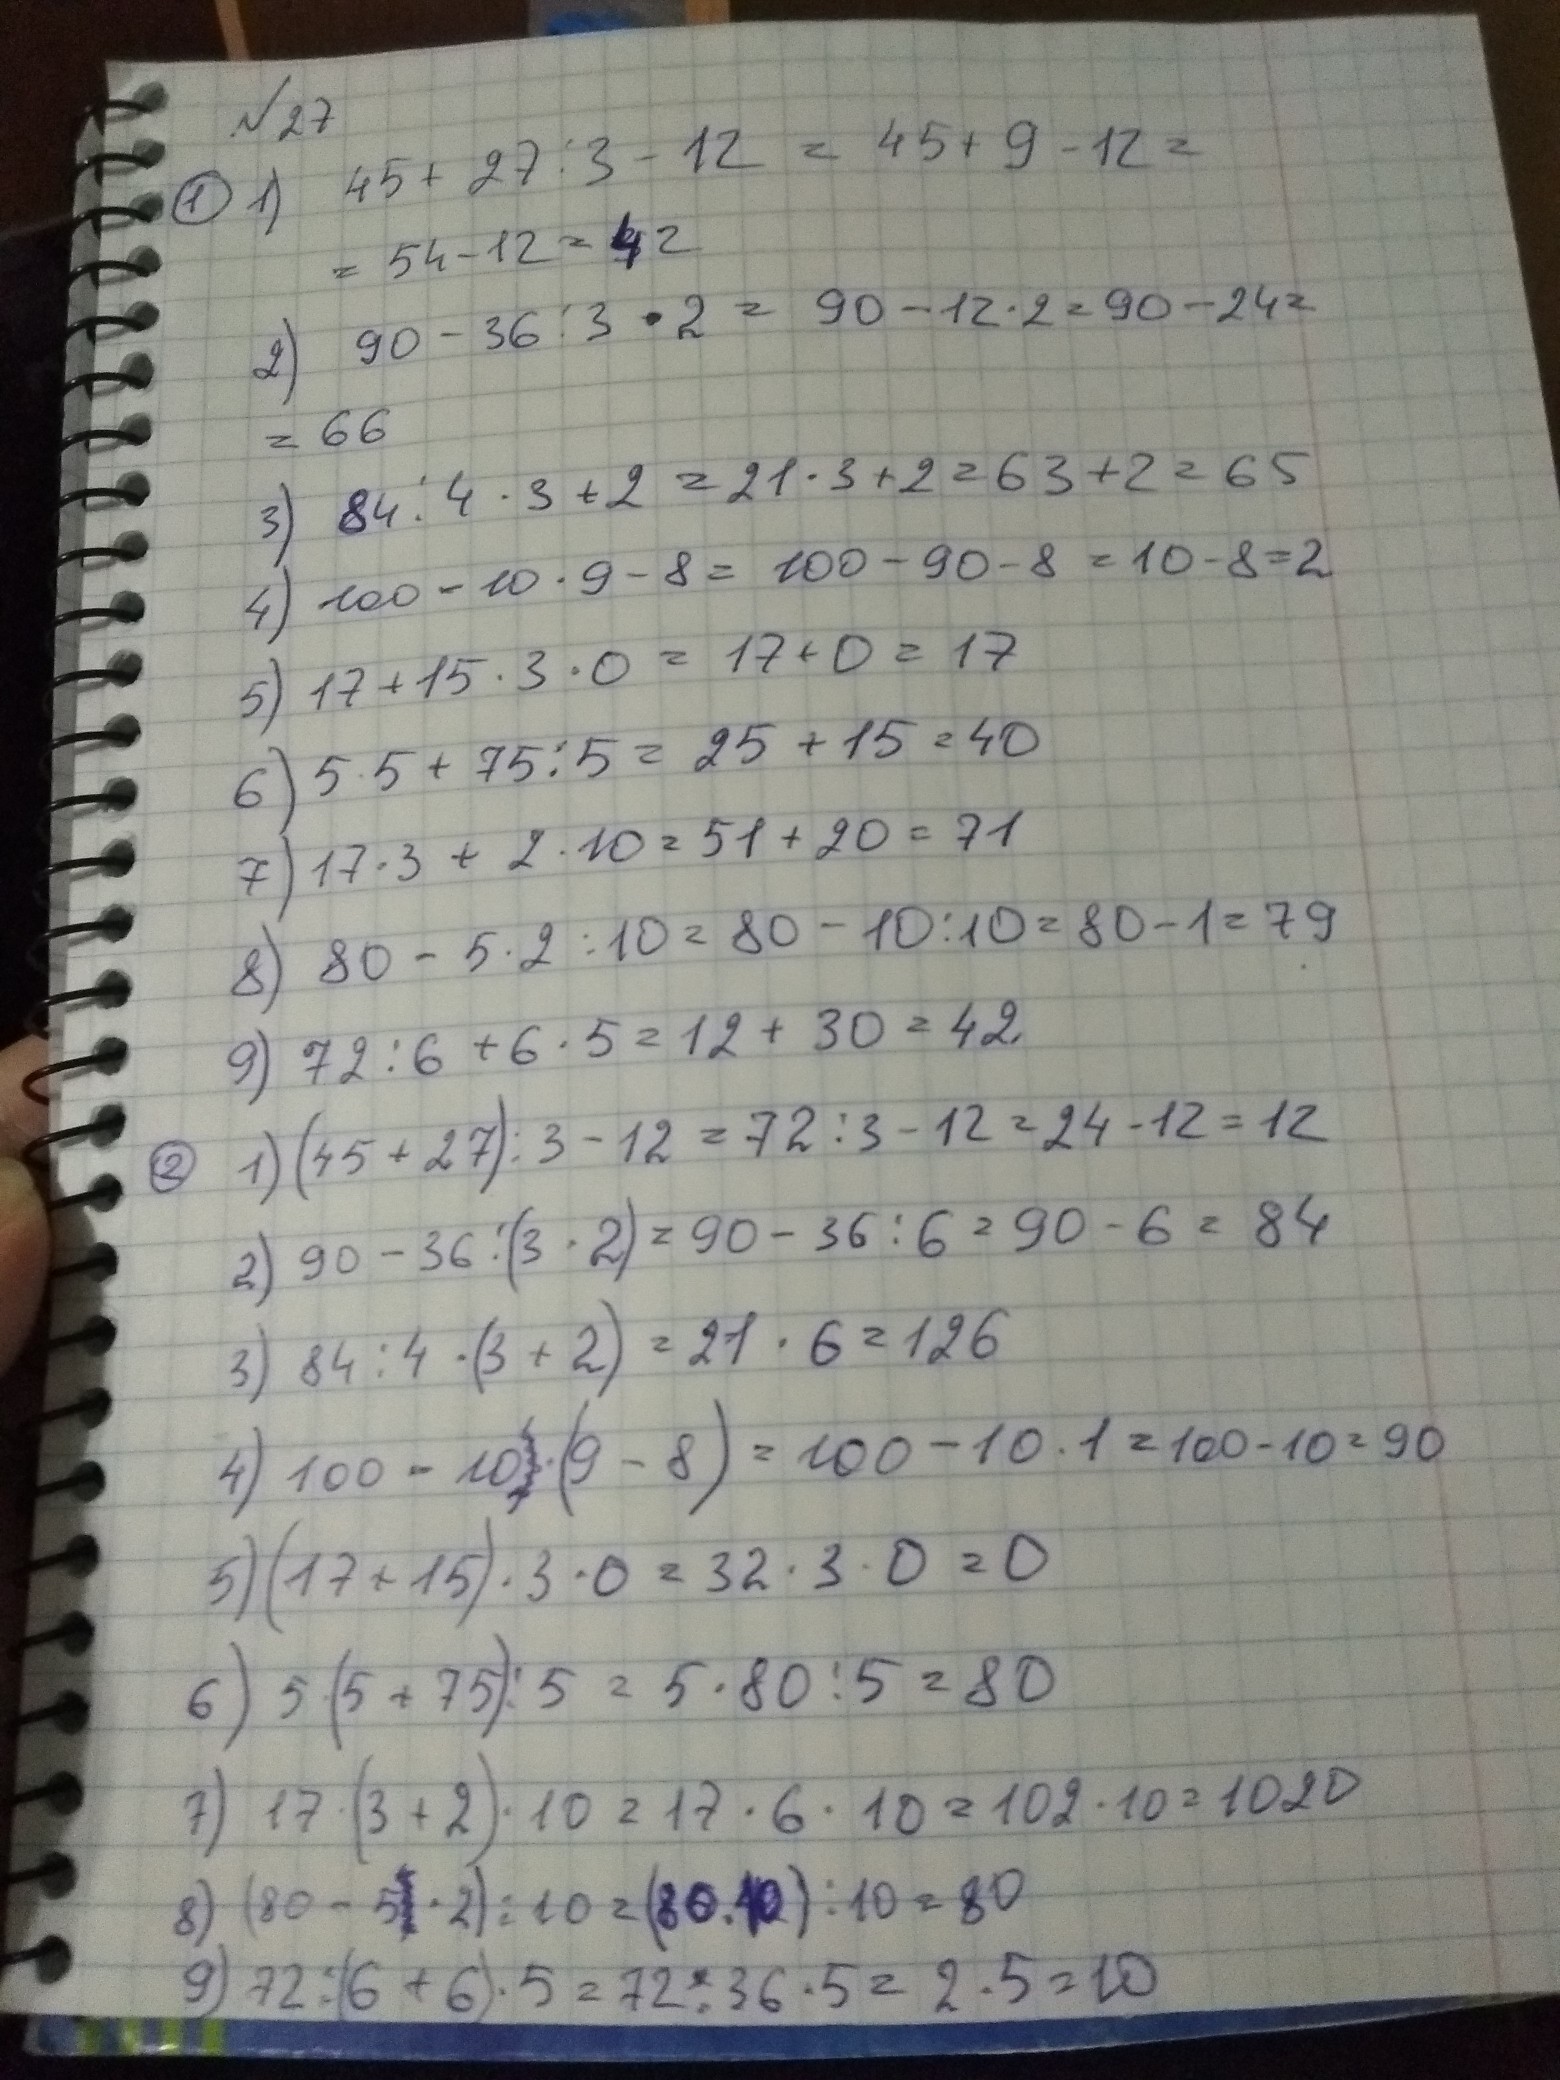 №27
① 1) 45 + 27 : 3 - 12 = 45 + 9 - 12 =
= 54 - 12 = 42
2) 90 - 36 : 3 · 2 = 90 - 12 · 2 = 90 - 24 =
= 66
3) 84 : 4 · 3 + 2 = 21 · 3 + 2 = 63 + 2 = 65
4) 100 - 10 · 9 - 8 = 100 - 90 - 8 = 10 - 8 = 2
5) 17 + 15 · 3 · 0 = 17 + 0 = 17
6) 5 · 5 + 75 : 5 = 25 + 15 = 40
7) 17 · 3 + 2 · 10 = 51 + 20 = 71
8) 80 - 5 · 2 : 10 = 80 - 10 : 10 = 80 - 1 = 79
9) 72 : 6 + 6 · 5 = 12 + 30 = 42
② 1) (45 + 27) : 3 - 12 = 72 : 3 - 12 = 24 - 12 = 12
2) 90 - 36 : (3 · 2) = 90 - 36 : 6 = 90 - 6 = 84
3) 84 : 4 · (3 + 2) = 21 · 6 = 126
4) 100 - 10 · (9 - 8) = 100 - 10 · 1 = 100 - 10 = 90
5) (17 + 15) · 3 · 0 = 32 · 3 · 0 = 0
6) 5 · (5 + 75) : 5 = 5 · 80 : 5 = 80
7) 17 · (3 + 2) · 10 = 17 · 6 · 10 = 102 · 10 = 1020
8) (80 - 5 · 2) : 10 = (80 · 10) : 10 = 80
9) 72 : (6 + 6) · 5 = 72 : 36 · 5 = 2 · 5 = 10